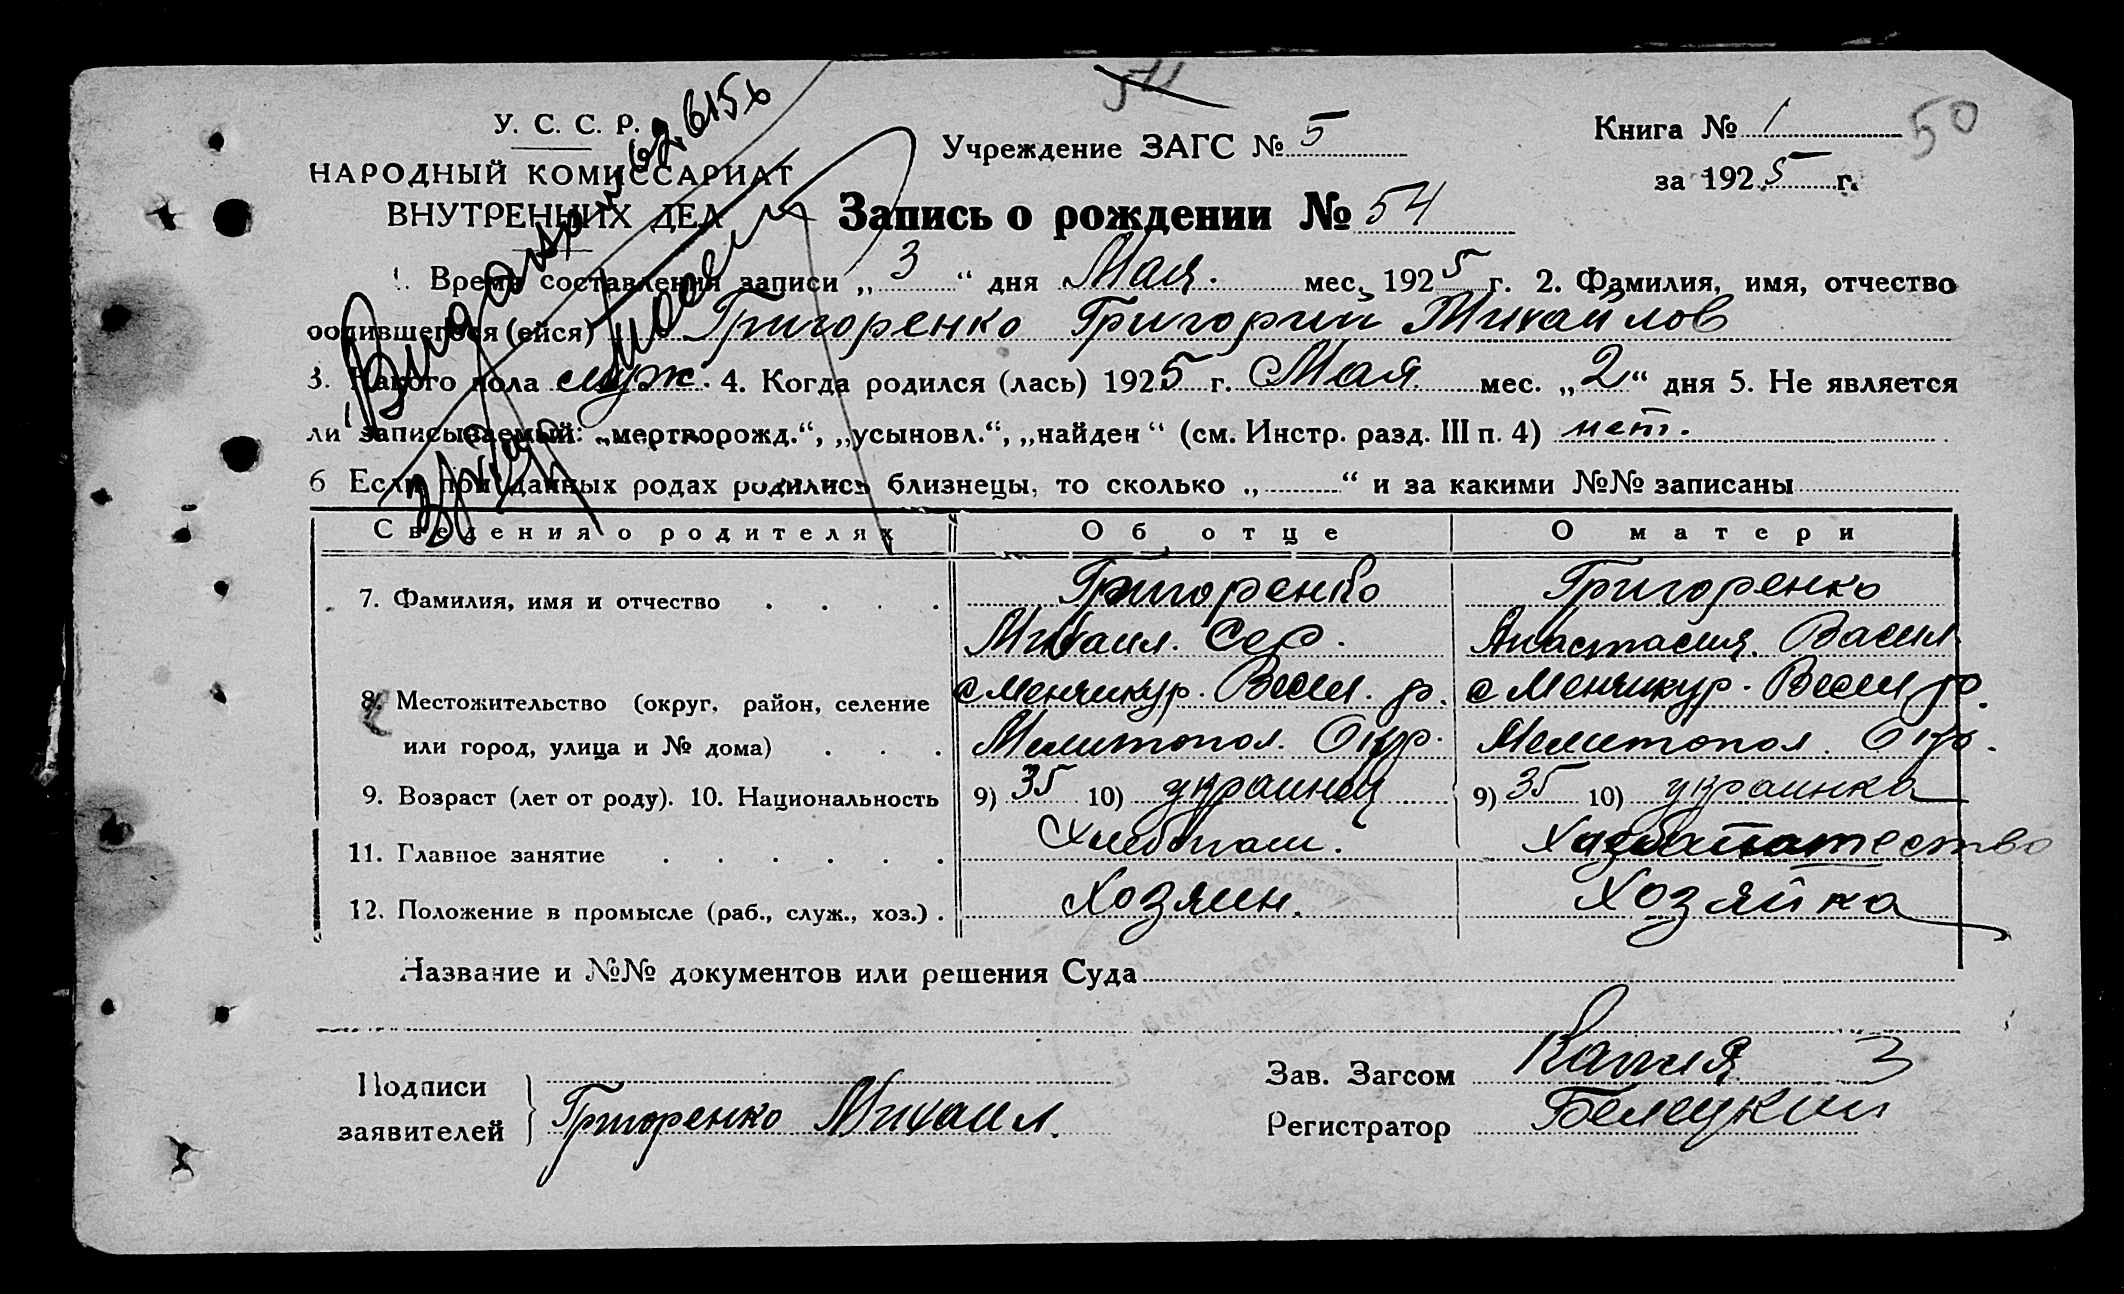 54
У. С. С. Р.
НАРОДНЫЙ КОМИССАРИАТ
ВНУТРЕННИХ ДЕЛ
Учреждение ЗАГС № 5
Книга № 1
50
за 1925 г.
Запись о рождении № 54
1. Время составления записи „3“ дня Мая. мес. 1925 г. 2. Фамилия, имя, отчество
родившегося (ейся) Григоренко Григорий Михайлов
3. Какого пола муж. 4. Когда родился (лась) 1925 г. Мая мес. „2“ дня 5. Не является
ли записываемый: „мертворожд.“, „усыновл.“, „найден“ (см. Инстр. разд. III п. 4) нет.
6 Если при данных родах родились близнецы, то сколько „ “ и за какими №№ записаны
Сведения о родителях Об отце О матери
7. Фамилия, имя и отчество Григоренко Григоренко
Михаил. Анастасия. Васил.
8. Местожительство (округ, район, селение с Менчикур. Весел. р. с Менчикур. Весел р.
или город, улица и № дома) Мелитопол. Окр. Мелитопол. Окр.
9. Возраст (лет от роду). 10. Национальность 9) 35 10) украинец 9) 35 10) украинка
11. Главное занятие Хлебопаш.
12. Положение в промысле (раб., служ., хоз.) Хозяин. Хозяйка
Название и №№ документов или решения Суда
Подписи
заявителей Григоренко Михаил.
Зав. Загсом
Регистратор Белецкий